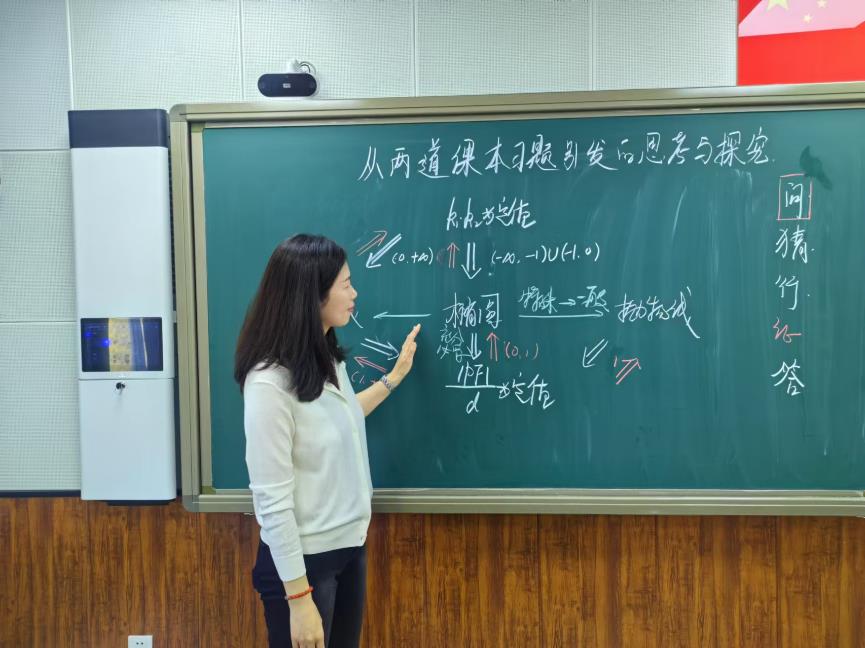 从两道课本习题引发的思考与探究.
k₁·k₂为定值
(0,+∞) (-∞,-1)∪(-1,0)
椭圆 特殊→一般 抛物线
充分
必要 (0,1)
|PF| / d 为定值
1
问
猜
行
论
答